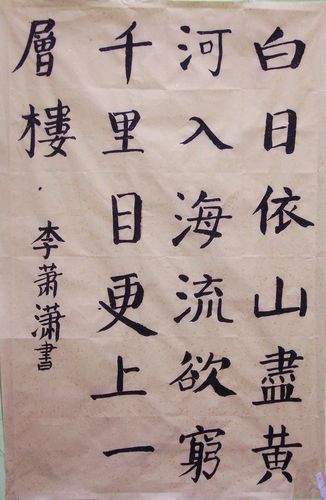 白日依山盡黄
河入海流欲窮
千里目更上一
層樓
李萧潇書